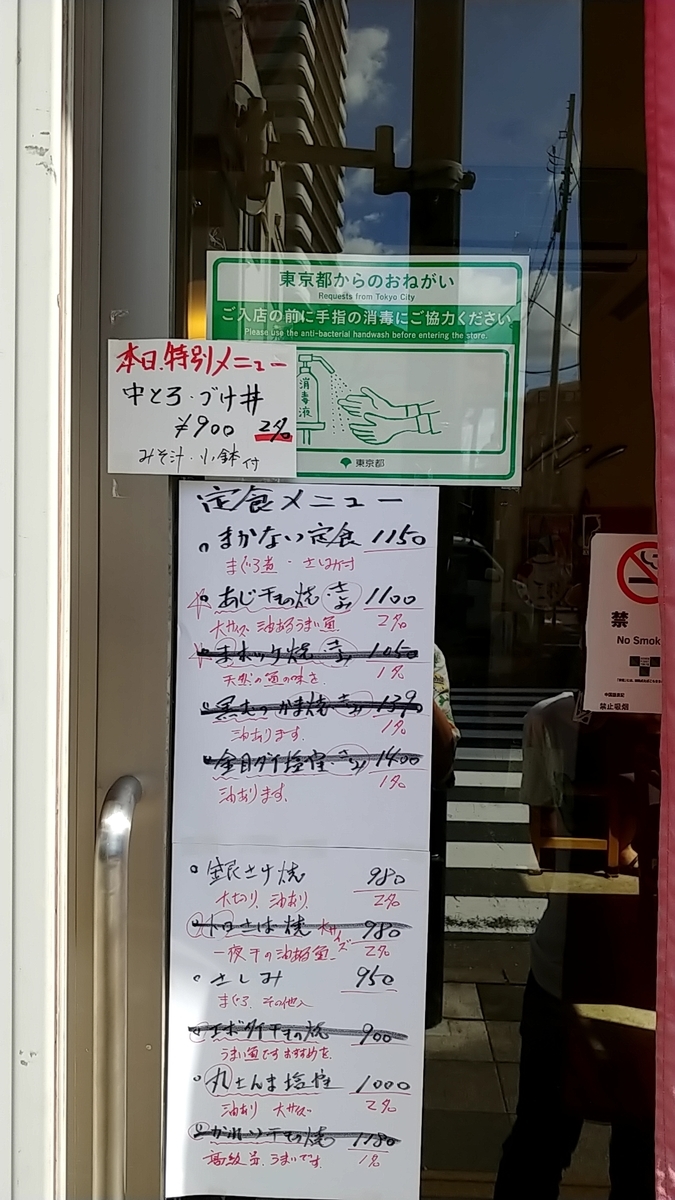 東京都からのおねがい
Requests from Tokyo City
ご入店の前に手指の消毒にご協力ください
Please use the anti-bacterial handwash before entering the store.
消毒液
東京都
本日特別メニュー
中とろ・づけ丼
¥900 2名
みそ汁・小鉢付
定食メニュー
まかない定食 1150
まぐろ煮・さしみ付
あじ干もの焼 1100
大サイズ 油あるうまい魚 2名
ホッケ焼 1050
天然の魚の味を 1名
かま焼
油あります 1名
金目ダイ塩焼 1400
油あります 1名
銀さけ焼 980
大切り 油あり 2名
トロさば焼 大サイズ 980
一夜干の油ある魚 2名
さしみ 950
まぐろ その他入
エボダイ干もの焼 900
うまい魚ですおすすめを
丸さんま塩焼 1000
油あり 大サイズ 2名
干もの焼 1180
高級品 うまいです 1名
禁
No Smok
禁止吸烟